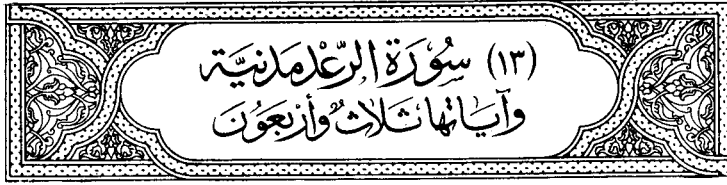 (١٣) سُوْرَة الرَّعْد مَدَنيَّة
وَآيَاتهَا ثَلَاثٌ وَأَرْبَعُوْنَ